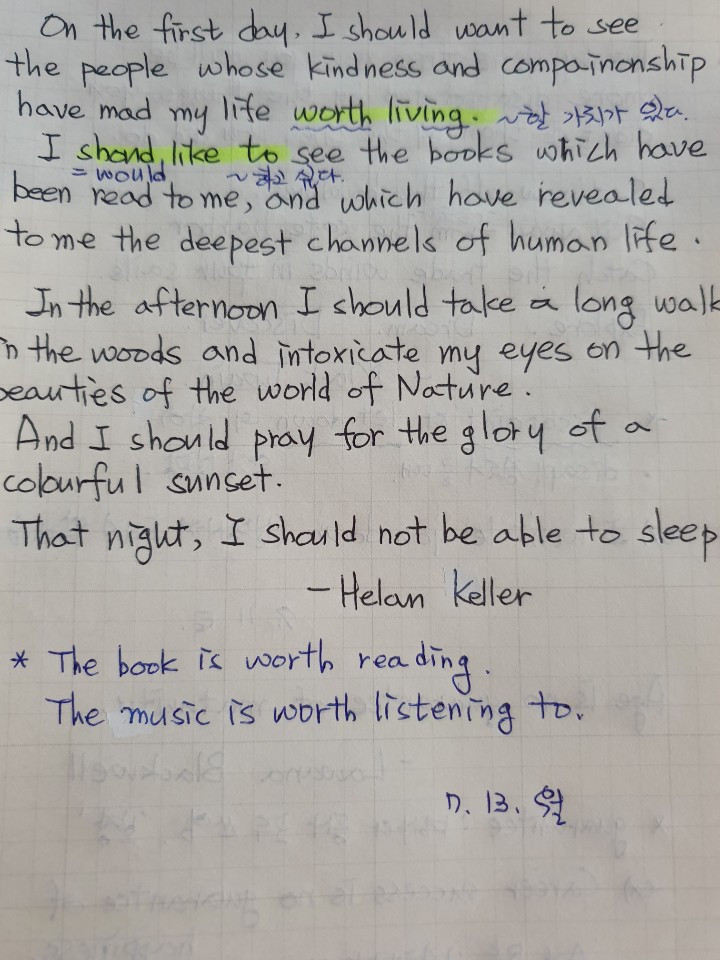 On the first day, I should want to see
the people whose kindness and compainonship
have mad my life worth living. ~할 가치가 있다.
I shoud, like to see the books which have
= would ~하고 싶다.
been read to me, and which have revealed
to me the deepest channels of human life.
In the afternoon I should take a long walk
in the woods and intoxicate my eyes on the
beauties of the world of Nature.
And I should pray for the glory of a
colourful sunset.
That night, I should not be able to sleep
- Helan Keller
* The book is worth reading.
The music is worth listening to.
7. 13. 월